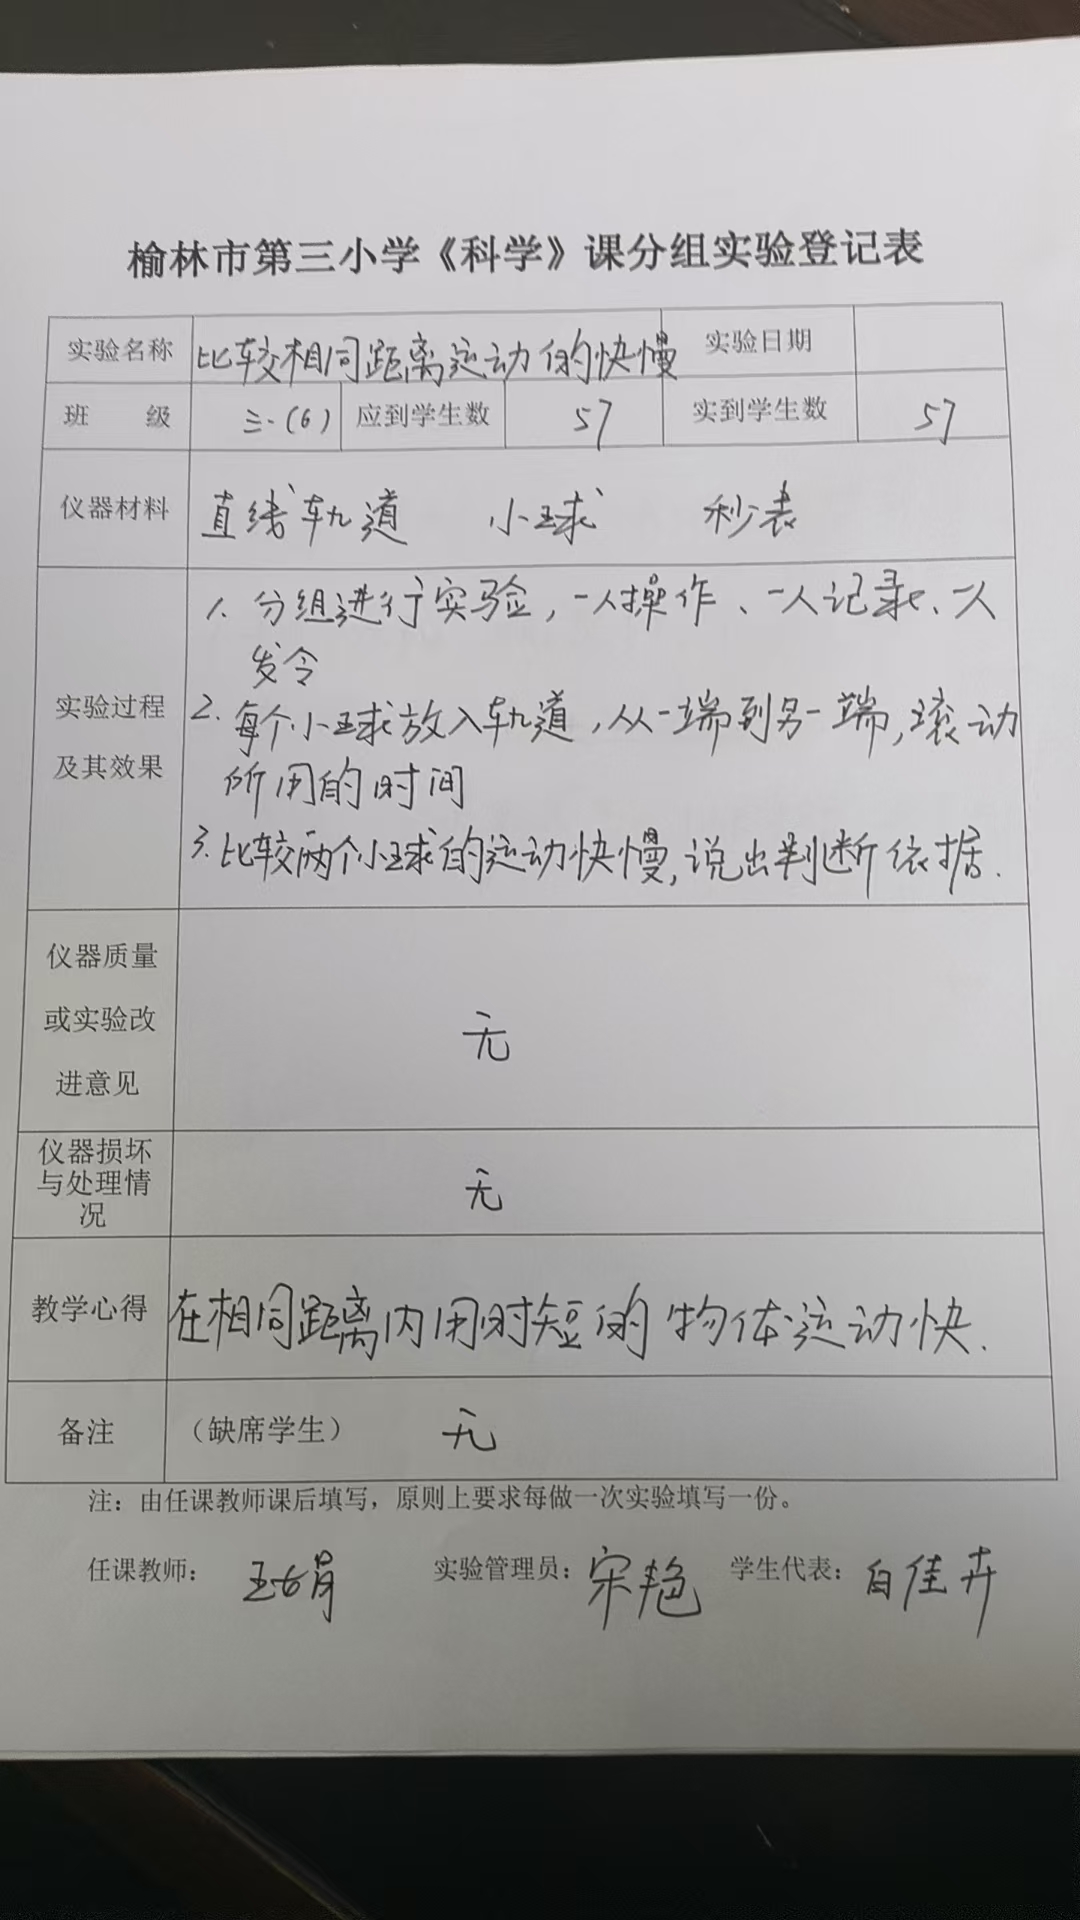 榆林市第三小学《科学》课分组实验登记表
实验名称 比较相同距离运动的快慢 实验日期
班 级 三.(6) 应到学生数 57 实到学生数 57
仪器材料 直线轨道 小球 秒表
实验过程
及其效果
1. 分组进行实验,一人操作、一人记录、一人
发令
2. 每个小球放入轨道,从一端到另一端,滚动
所用的时间
3. 比较两个小球的运动快慢,说出判断依据.
仪器质量
或实验改
进意见
无
仪器损坏
与处理情
况
无
教学心得 在相同距离内用时短的物体运动快.
备注 (缺席学生) 无
注:由任课教师课后填写,原则上要求每做一次实验填写一份。
任课教师: 王娟 实验管理员: 宋艳 学生代表: 白佳卉